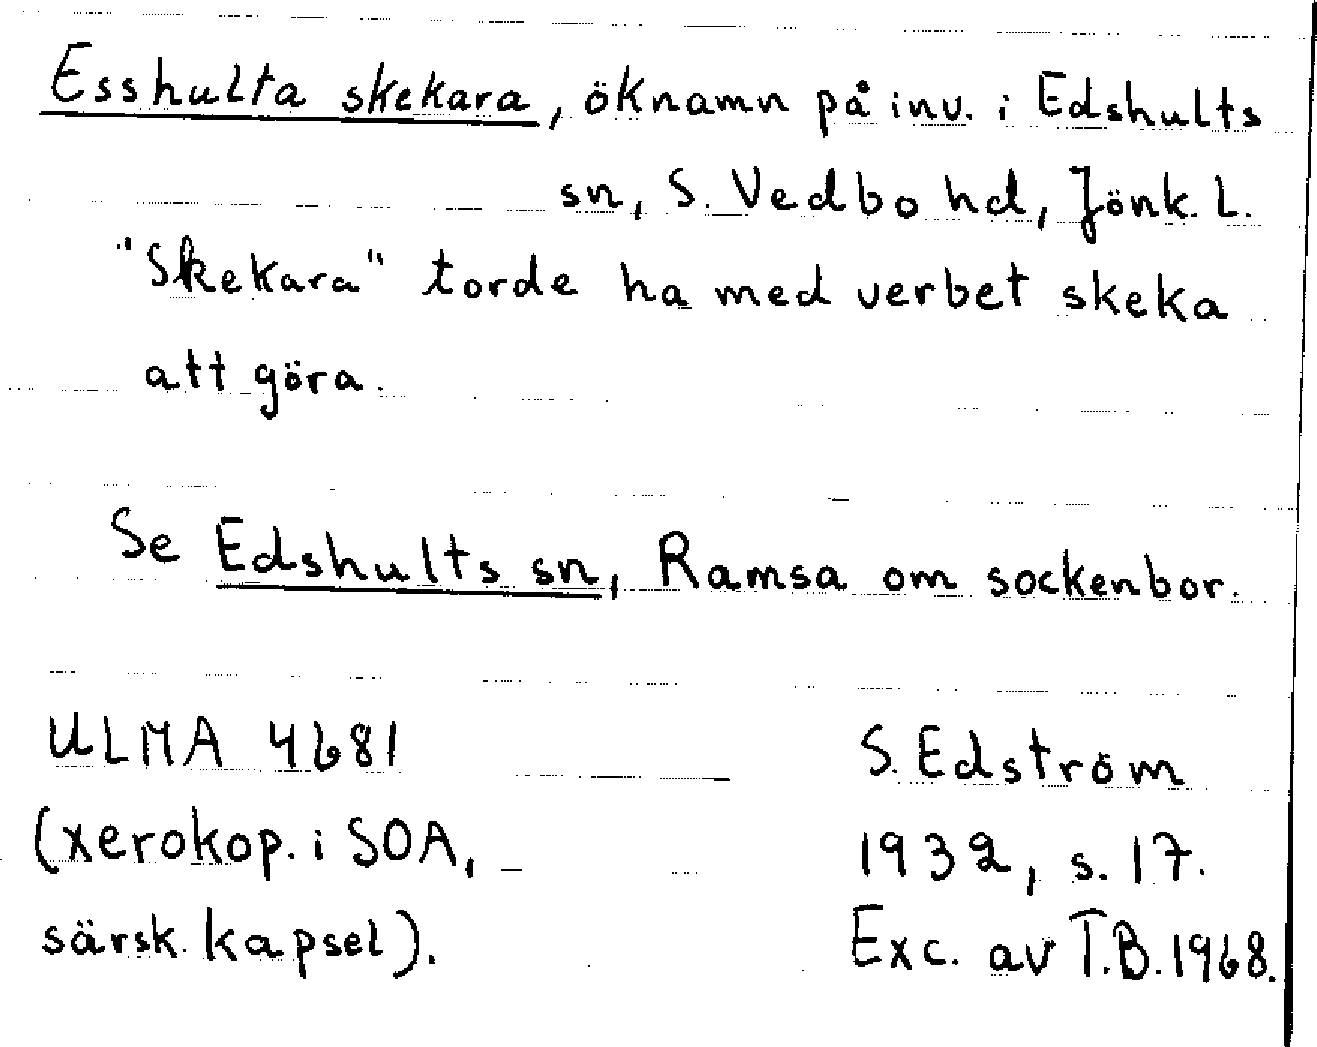 Esshulta skekara, öknamn på inv. i Edshults
sn, S. Vedbo hd, Jönk. L.
"Skekara" torde ha med verbet skeka
att göra.
Se Edshults sn, Ramsa om sockenbor.
ULMA 4681
(xerokop. i SOA,
särsk. kapsel).
S. Edström
1932, s. 17.
Exc. av T.B. 1968.